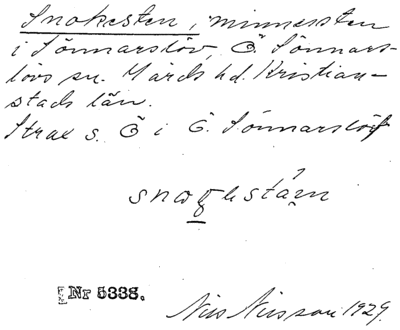 Snokesten, minnessten
i Sönnarslöv, Ö. Sönnars-
lövs sn. Gärds hd. Kristian-
stads län.
Strax s. Ö i Ö. Sönnarslöv
Nr 5338.
Nils Nilsson 1929